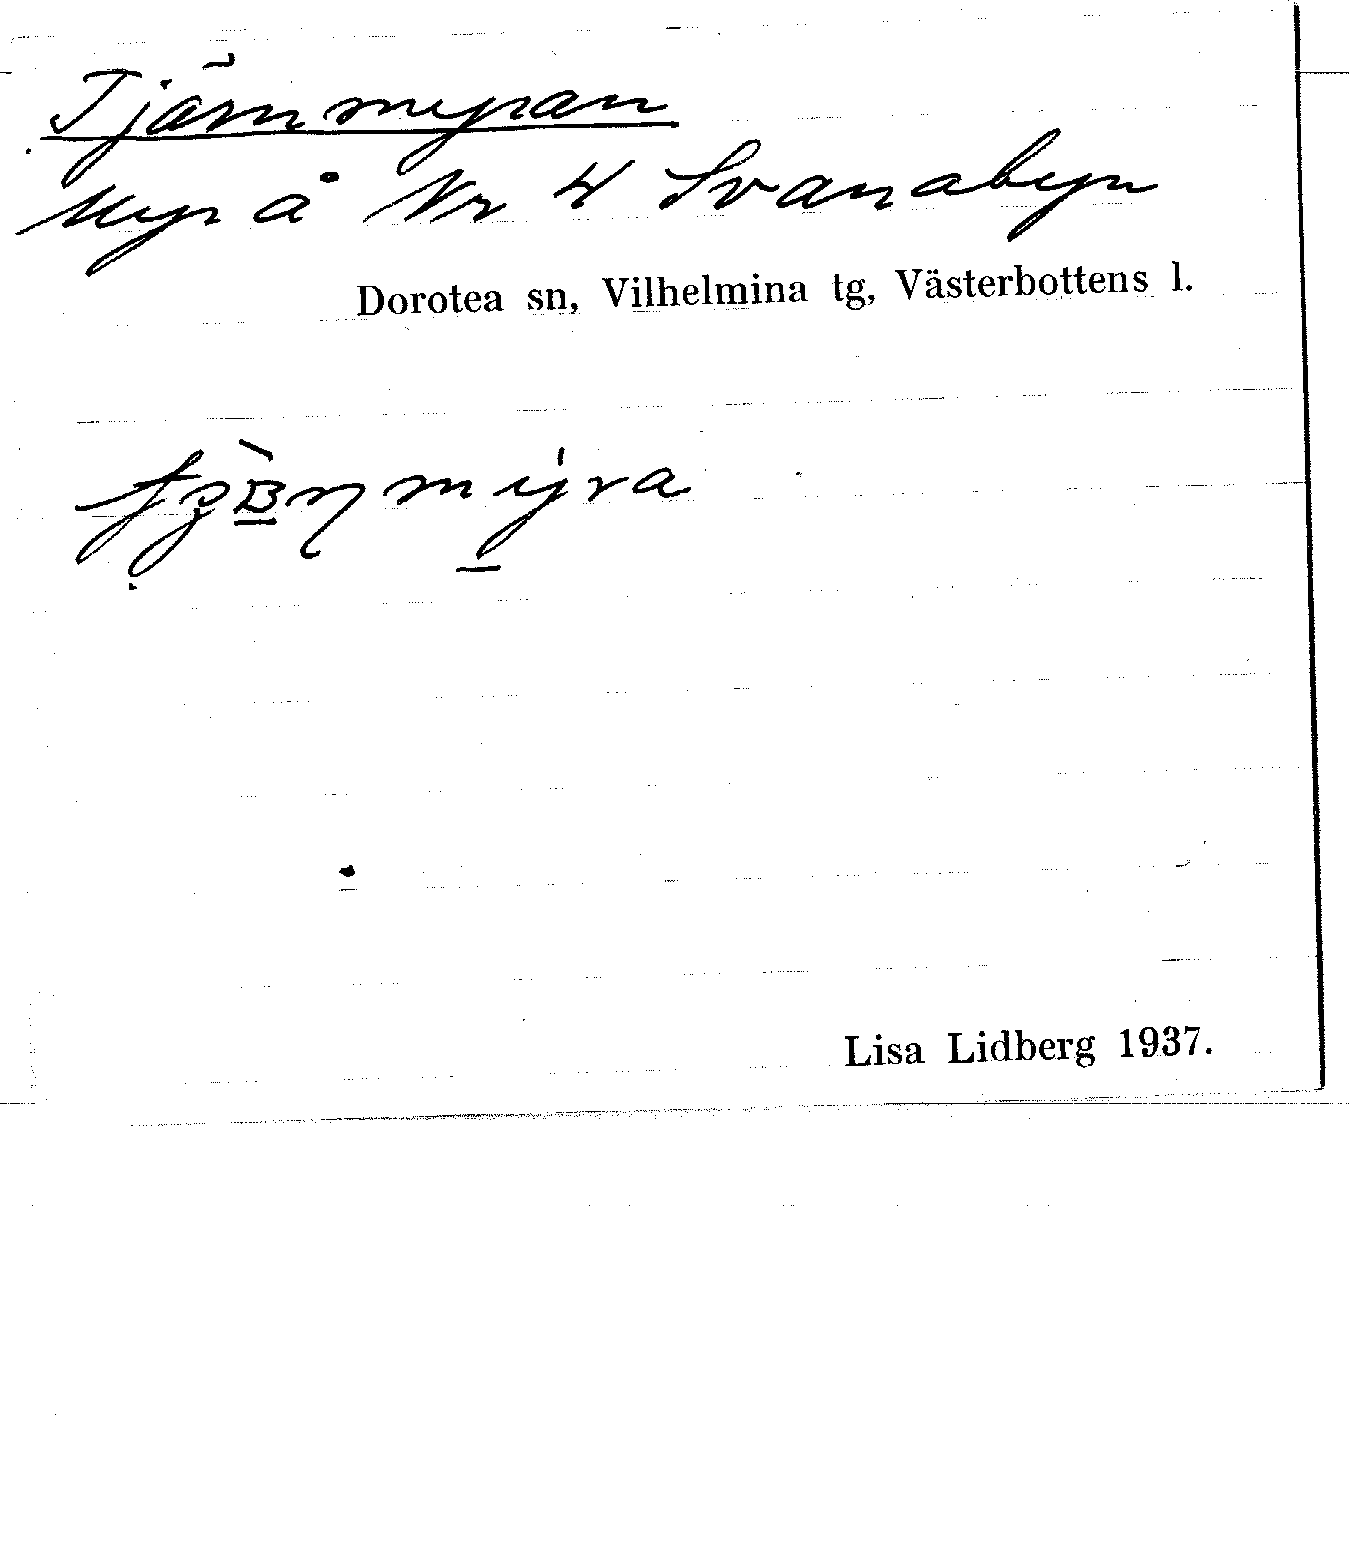 Tjärnmyran
Myr å Nr 4 Svanabyn
Dorotea sn, Vilhelmina tg, Västerbottens l.
Lisa Lidberg 1937.